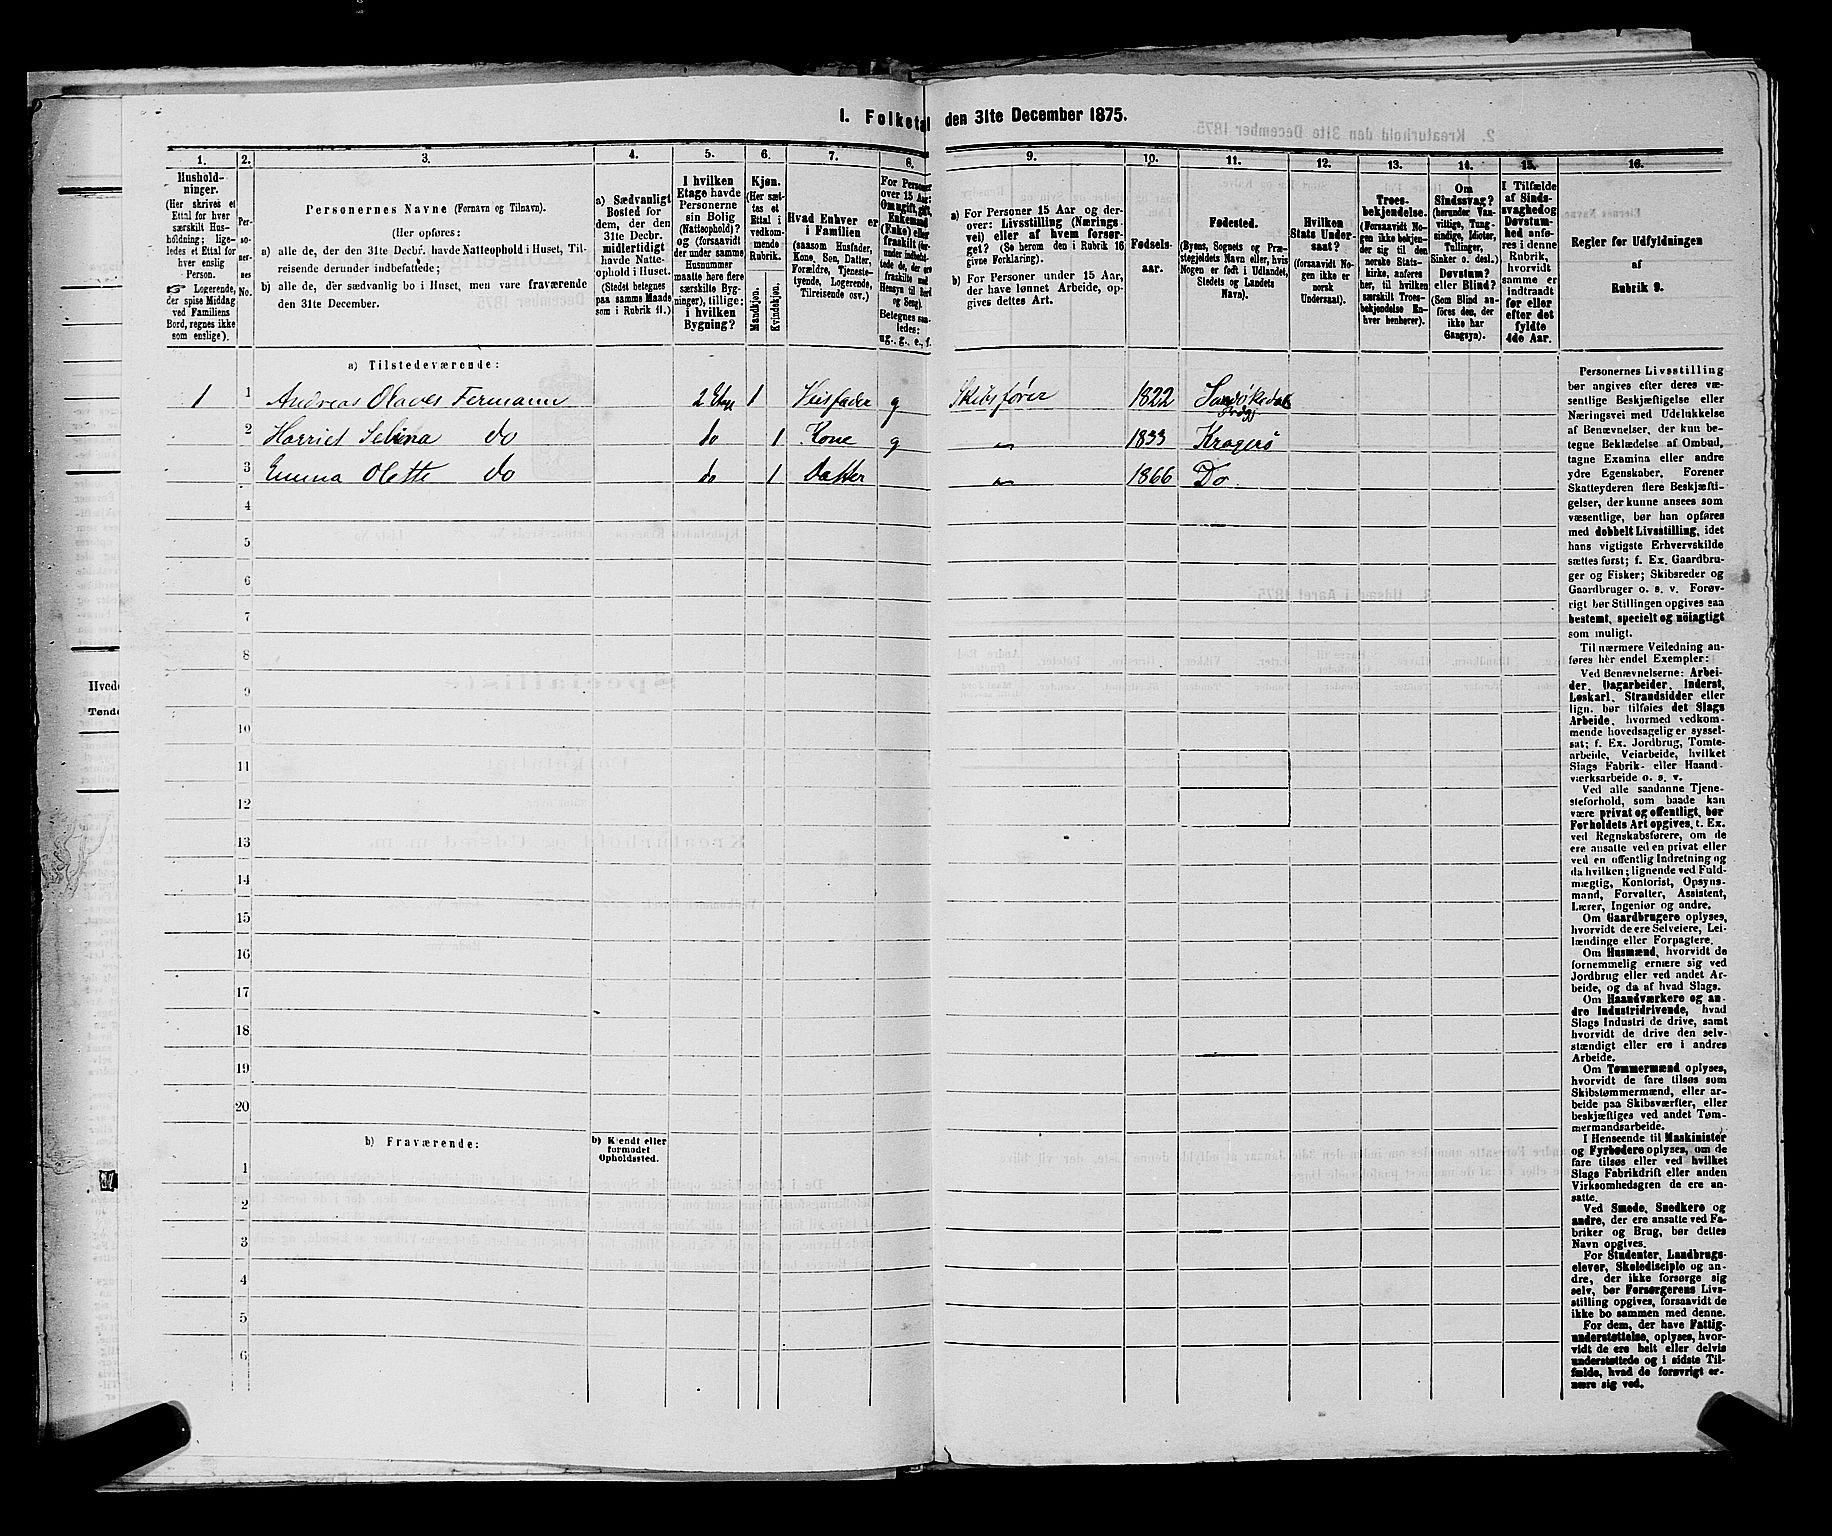 1. Folketal den 31te December 1875.
1. 2. 3. 4. 5. 6. 7. 8. 9. 10. 11. 12. 13. 14. 15. 16.
Hushold-
ninger.
(Her skrives et
Ettal for hver
særskilt Hus-
holdning; lige-
ledes et Ettal for
hver enslig
Person.
☞ Logerende,
der spise Middag
ved Familiens
Bord, regnes ikke
som enslige).
Per-
so-
ner-
nes
No.
Personernes Navne (Fornavn og Tilnavn).
(Her opføres:
a) alle de, der den 31te Decbr. havde Natteophold i Huset, Til-
reisende derunder indbefattede;
b) alle de, der sædvanlig bo i Huset, men vare fraværende
den 31te December.
a) Sædvanligt
Bosted for
dem, der den
31te Decbr.
midlertidigt
havde Natte-
ophold i Huset.
(Stedet betegnes
paa samme Maade
som i Rubrik 11.)
I hvilken
Etage havde
Personerne
sin Bolig
(Natteophold)?
og (forsaavidt
der under samme
Husnummer
maatte høre flere
særskilte Byg-
ninger), tillige:
i hvilken
Bygning?
Kjøn.
(Her sæt-
tes et
Ettal i
vedkom-
mende
Rubrik.
Mandkjøn.
Kvindekjøn.
Hvad Enhver er
i Familien
(saasom Husfader,
Kone, Søn, Datter,
Forældre, Tjeneste-
tyende, Logerende,
Tilreisende osv.)
For Personer
over 15 Aar:
Om ugift, gift,
Enkemand
(Enke) eller
fraskilt
Betegnes saa-
ledes:
ug., g., e., f.
a) For Personer 15 Aar og der-
over: Livsstilling (Nærings-
vei) eller af hvem forsør-
get? (Se herom den i Rubrik 16
givne Forklaring).
b) For Personer under 15 Aar,
der have lønnet Arbeide, op-
gives dettes Art.
Fødsels-
aar.
Fødested.
(Byens, Sognets og Præ-
stegjeldets Navn eller, hvis
Nogen er født i Udlandet,
Stedets og Landets
Navn).
Hvilken
Stats Under-
saat?
(forsaavidt No-
gen ikke er
norsk
Undersaat).
Troes-
bekjendelse.
(Forsaavidt No-
gen ikke bekjen-
der sig til den
norske Stats-
kirke, anføres
her, til hvilken
særskilt Troes-
bekjendelse En-
hver henhører).
Om
Sindssvag?
(herunder Van-
vittige, Tung-
sindige, Idioter,
Tullinger,
Sinker o. desl.)
Døvstum?
eller Blind?
(Som Blind an-
føres den, der
ikke har
Gangsyn).
I Tilfælde
af Sinds-
svaghed og
Døvstum-
hed anfø-
res i denne
Rubrik,
hvorvidt
samme er
indtraadt
før eller
efter det
fyldte
4de Aar.
Regler for Udfyldningen
af
Rubrik 9.
a) Tilstedeværende:
1 1 Andreas Olaves Fermann 2 Etage 1 Husfader g Skibsfører 1822 Sandøkedal
Prdgj
2 Harriet Selina do do 1 Kone g " 1833 Kragerø
3 Emma Olette do do 1 Datter " 1866 Do
4
5
6
7
8
9
10
11
12
13
14
15
16
17
18
19
20
b) Fraværende:
b) Kjendt eller
formodet
Opholdssted.
1
2
3
4
5
6
Personernes Livsstilling
bør angives efter deres væ-
sentlige Beskjæftigelse eller
Næringsvei med Udelukkelse
af Benævnelser, der kun be-
tegne Beklædelse af Ombud,
tagne Examina eller andre
ydre Egenskaber. Forener
Skatteyderen flere Beskjæfti-
gelser, der kunne ansees som
væsentlige, bør han opføres
med dobbelt Livsstilling, idet
hans vigtigste Erhvervskilde
sættes først; f. Ex. Gaardbru-
ger og Fisker; Skibsreder og
Gaardbruger o. s. v. Forøv-
rigt bør Stillingen opgives saa
bestemt, specielt og nöiagtigt
som muligt.
Til nærmere Veiledning an-
føres her endel Exempler:
Ved Benævnelserne: Arbei-
der, Dagarbeider, Inderst,
Løskarl, Strandsidder eller
lign. bør tilføies det Slags
Arbeide, hvormed vedkom-
mende hovedsagelig er syssel-
sat; f. Ex. Jordbrug, Tomte-
arbeide, Veiarbeide, hvilket
Slags Fabrik- eller Haand-
værksarbeide o. s. v.
Ved alle saadanne Tjene-
steforhold, som baade kan
være privat og offentligt, bør
Forholdets Art opgives, t. Ex.
ved Regnskabsførere, om de
ere ansatte ved en privat eller
ved en offentlig Indretning og
da hvilken; lignende ved Fuld-
mægtig, Kontorist, Opsyns-
mand, Forvalter, Assistent,
Lærer, Ingeniør og andre.
Om Gaardbrugere oplyses,
hvorvidt de ere Selveiere, Lei-
lændinge eller Forpagtere.
Om Husmænd, hvorvidt de
fornemmelig ernære sig ved
Jordbrug eller ved andet Ar-
beide, og da af hvad Slags.
Om Haandværkere og an-
dre Industridrivende, hvad
Slags Industri de drive, samt
hvorvidt de drive den selv-
stændigt eller ere i andres
Arbeide.
Om Tømmermænd oplyses,
hvorvidt de fare tilsøs som
Skibstømmermænd, eller ar-
beide paa Skibsværfter, eller
beskjæftiges ved andet Tøm-
mermandsarbeide.
I Henseende til Maskinister
og Fyrbødere oplyses, om de
fare tilsøs eller ved hvilket
Slags Fabrikdrift eller anden
Virksomhedsgren de ere an-
satte.
Ved Smede, Snedkere og
andre, der ere ansatte ved Fa-
briker og Brug, bør dettes
Navn opgives.
For Studenter, Landbrugs-
elever, Skoledisciple og an-
dre, der ikke forsørge sig
selv, bør Forsørgerens Livs-
stilling opgives, forsaavidt de
ikke bo sammen med denne.
For dem, der have Fattig-
understøttelse, oplyses, hvor-
vidt de ere helt eller delvis
understøttede og i sidste Til-
fælde, hvad de forøvrigt er-
nære sig ved.